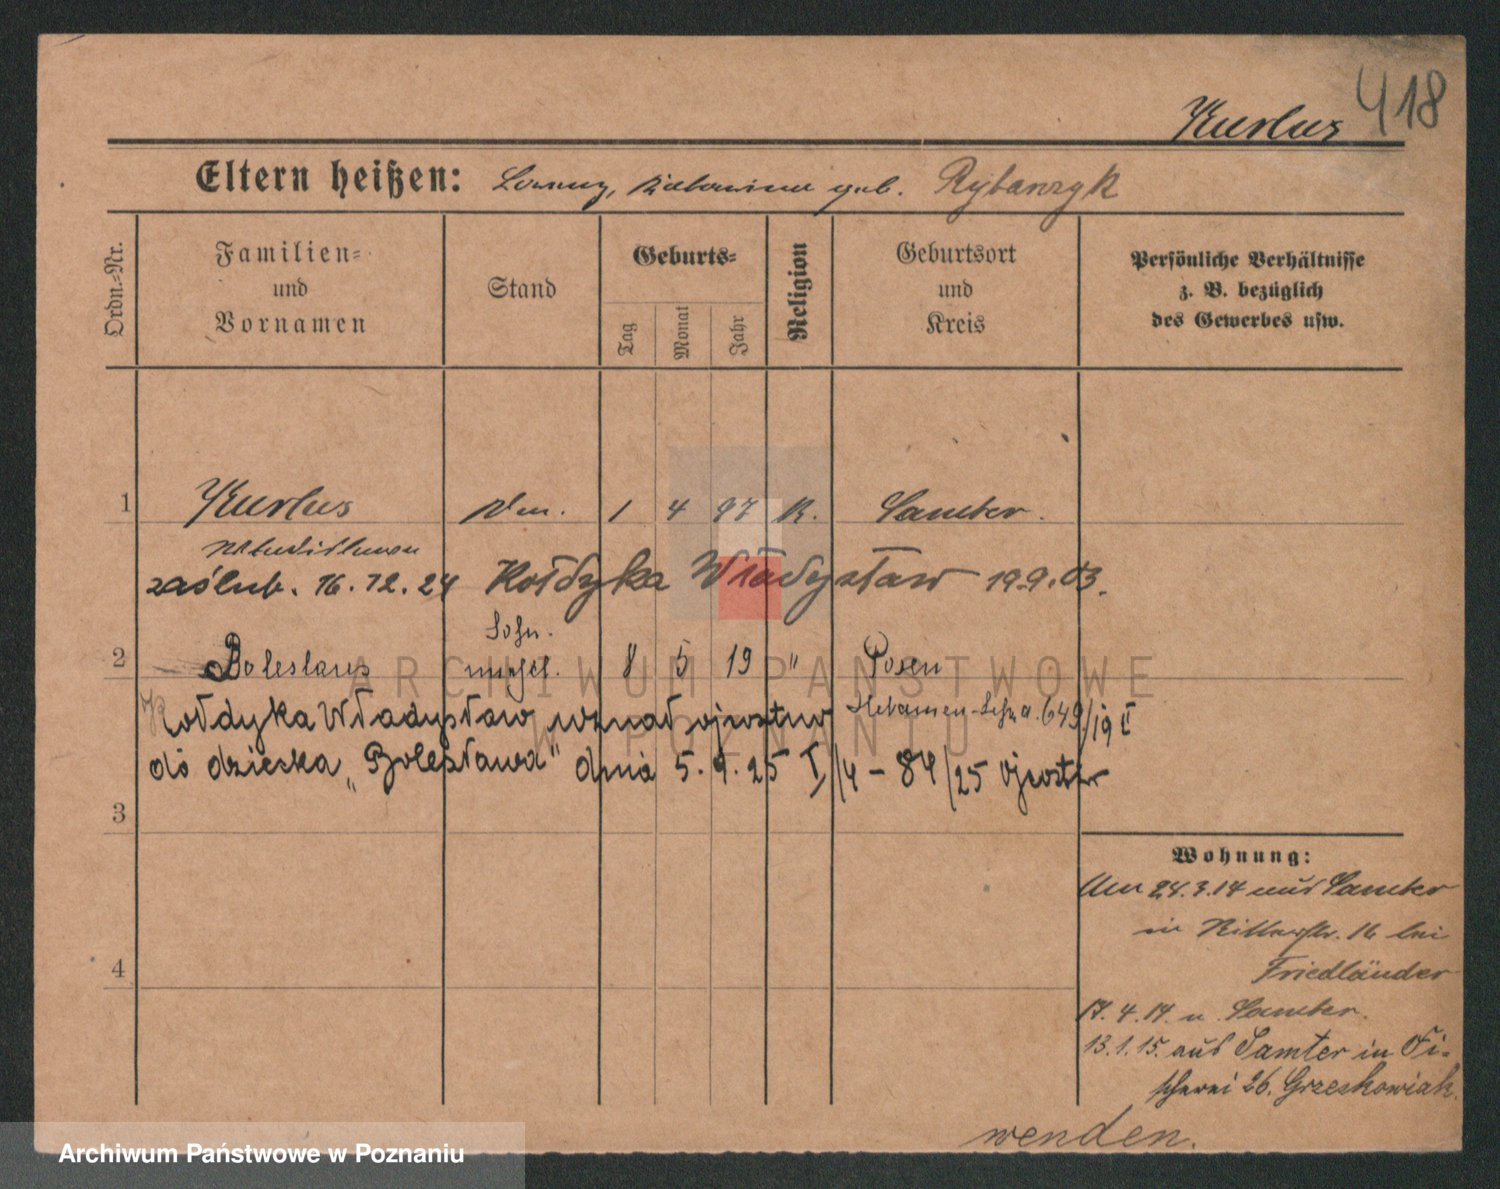 418
Kurlus
Eltern heißen: Lorenz, Katarina geb. Rybarzyk
Ordn.-Nr.
Familien-
und
Vornamen
Stand
Geburts-
Tag
Monat
Jahr
Religion
Geburtsort
und
Kreis
Persönliche Verhältnisse
z. B. bezüglich
des Gewerbes usw.
1 Kurlus Dm. 1 4 97 K. Samter.
zaślub. 16.12.24 Kołdyka Władysław 19.9.03.
Sohn
2 Boleslaus unehel. 8 5 19 " Posen
Hebammen-Lehra. 649/19 I
Kołdyka Władysław uznał ojcostwo
do dziecka „Bolesława" dnia 5.9.25 I/4 - 84/25 ojcostw
3
4
Wohnung:
Am 24.3.14 aus Samter
in Ritterstr. 16 bei
Friedländer
17.4.14. n. Samter.
13.1.15. aus Samter in Fi-
scherei 26. Grzeskowiak.
wenden.
ARCHIWUM PAŃSTWOWE
W POZNANIU
Archiwum Państwowe w Poznaniu